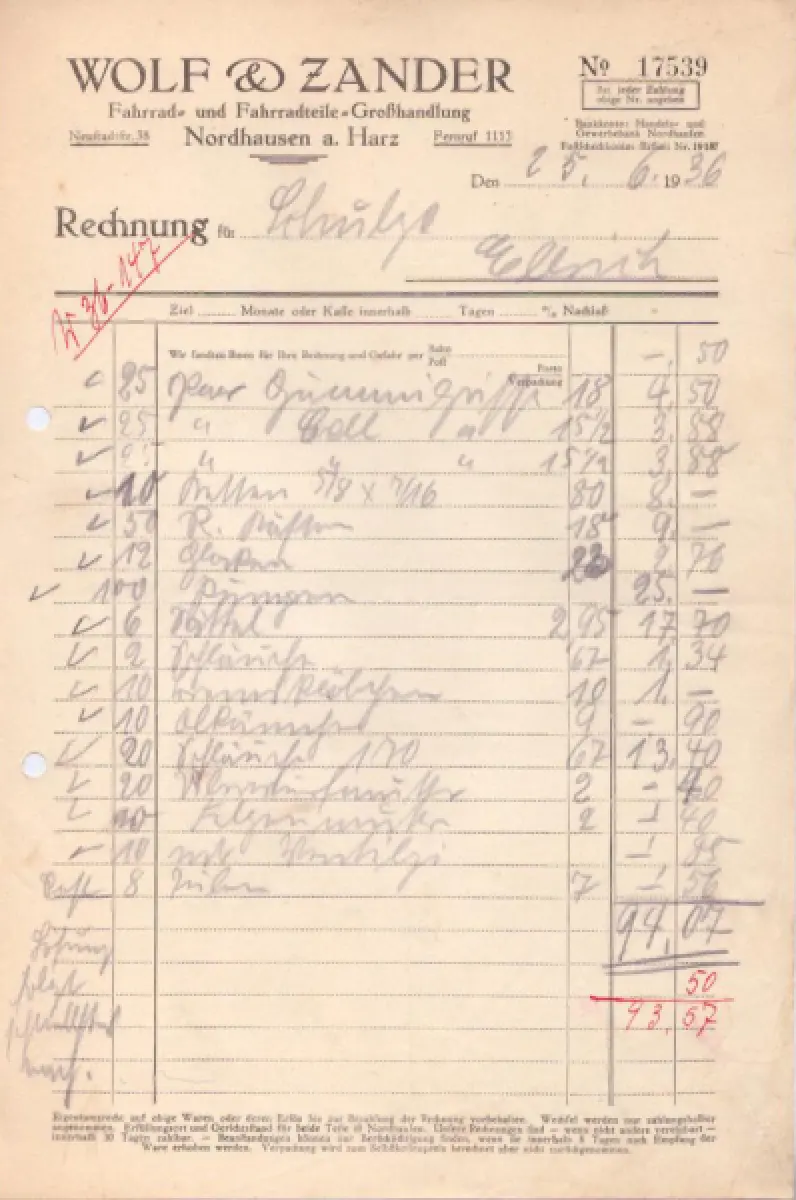 WOLF & ZANDER
Fahrrad- und Fahrradteile-Großhandlung
Neustadtstr. 38 Nordhausen a. Harz Fernruf 1115
No 17539
Bei jeder Zahlung
obige Nr. angeben
Bankkonto: Handels- und
Gewerbebank Nordhausen
Postscheckkonto: Erfurt Nr.
Den 25. 6. 1936
Rechnung für Schulze
Ellrich
36-147
Ziel Monate oder Kasse innerhalb Tagen % Nachlaß
Wir sandten Ihnen für Ihre Rechnung und Gefahr per Bahn Post
Porto Verpackung -, 50
25 Paar Gummigriffe 18 4, 50
25 " Cell " 15 1/2 3, 88
25 " " " 15 1/2 3, 88
10 Ketten 5/8 x 7/16 80 8, -
50 R. 18 9, -
12 Glocken 23 2, 76
100 25, -
6 Sättel 2,95 17, 70
2 Schläuche 67 1, 34
10 10 1, -
10 Ölkännchen 9 -, 90
20 Schläuche 170 67 13, 40
20 2 -, 40
2 -, 40
10 Ventile -,
8 7 -, 56
94, 07
50
93, 57
Eigentumsrecht auf obige Waren oder deren Erlös bis zur Bezahlung der Rechnung vorbehalten. Wechsel werden nur zahlungshalber
angenommen. Erfüllungsort und Gerichtsstand für beide Teile ist Nordhausen. Unsere Rechnungen sind — wenn nicht anders vereinbart —
innerhalb 30 Tagen zahlbar. — Beanstandungen können nur Berücksichtigung finden, wenn sie innerhalb 8 Tagen nach Empfang der
Ware erhoben werden. Verpackung wird zum Selbstkostenpreis berechnet aber nicht zurückgenommen.